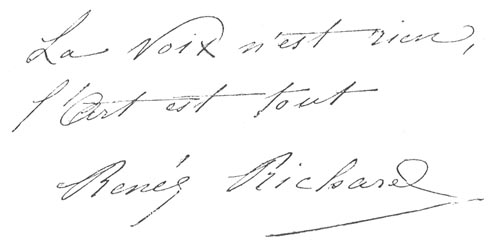 La Voix n'est rien,
l'Art est tout
Renée Richard